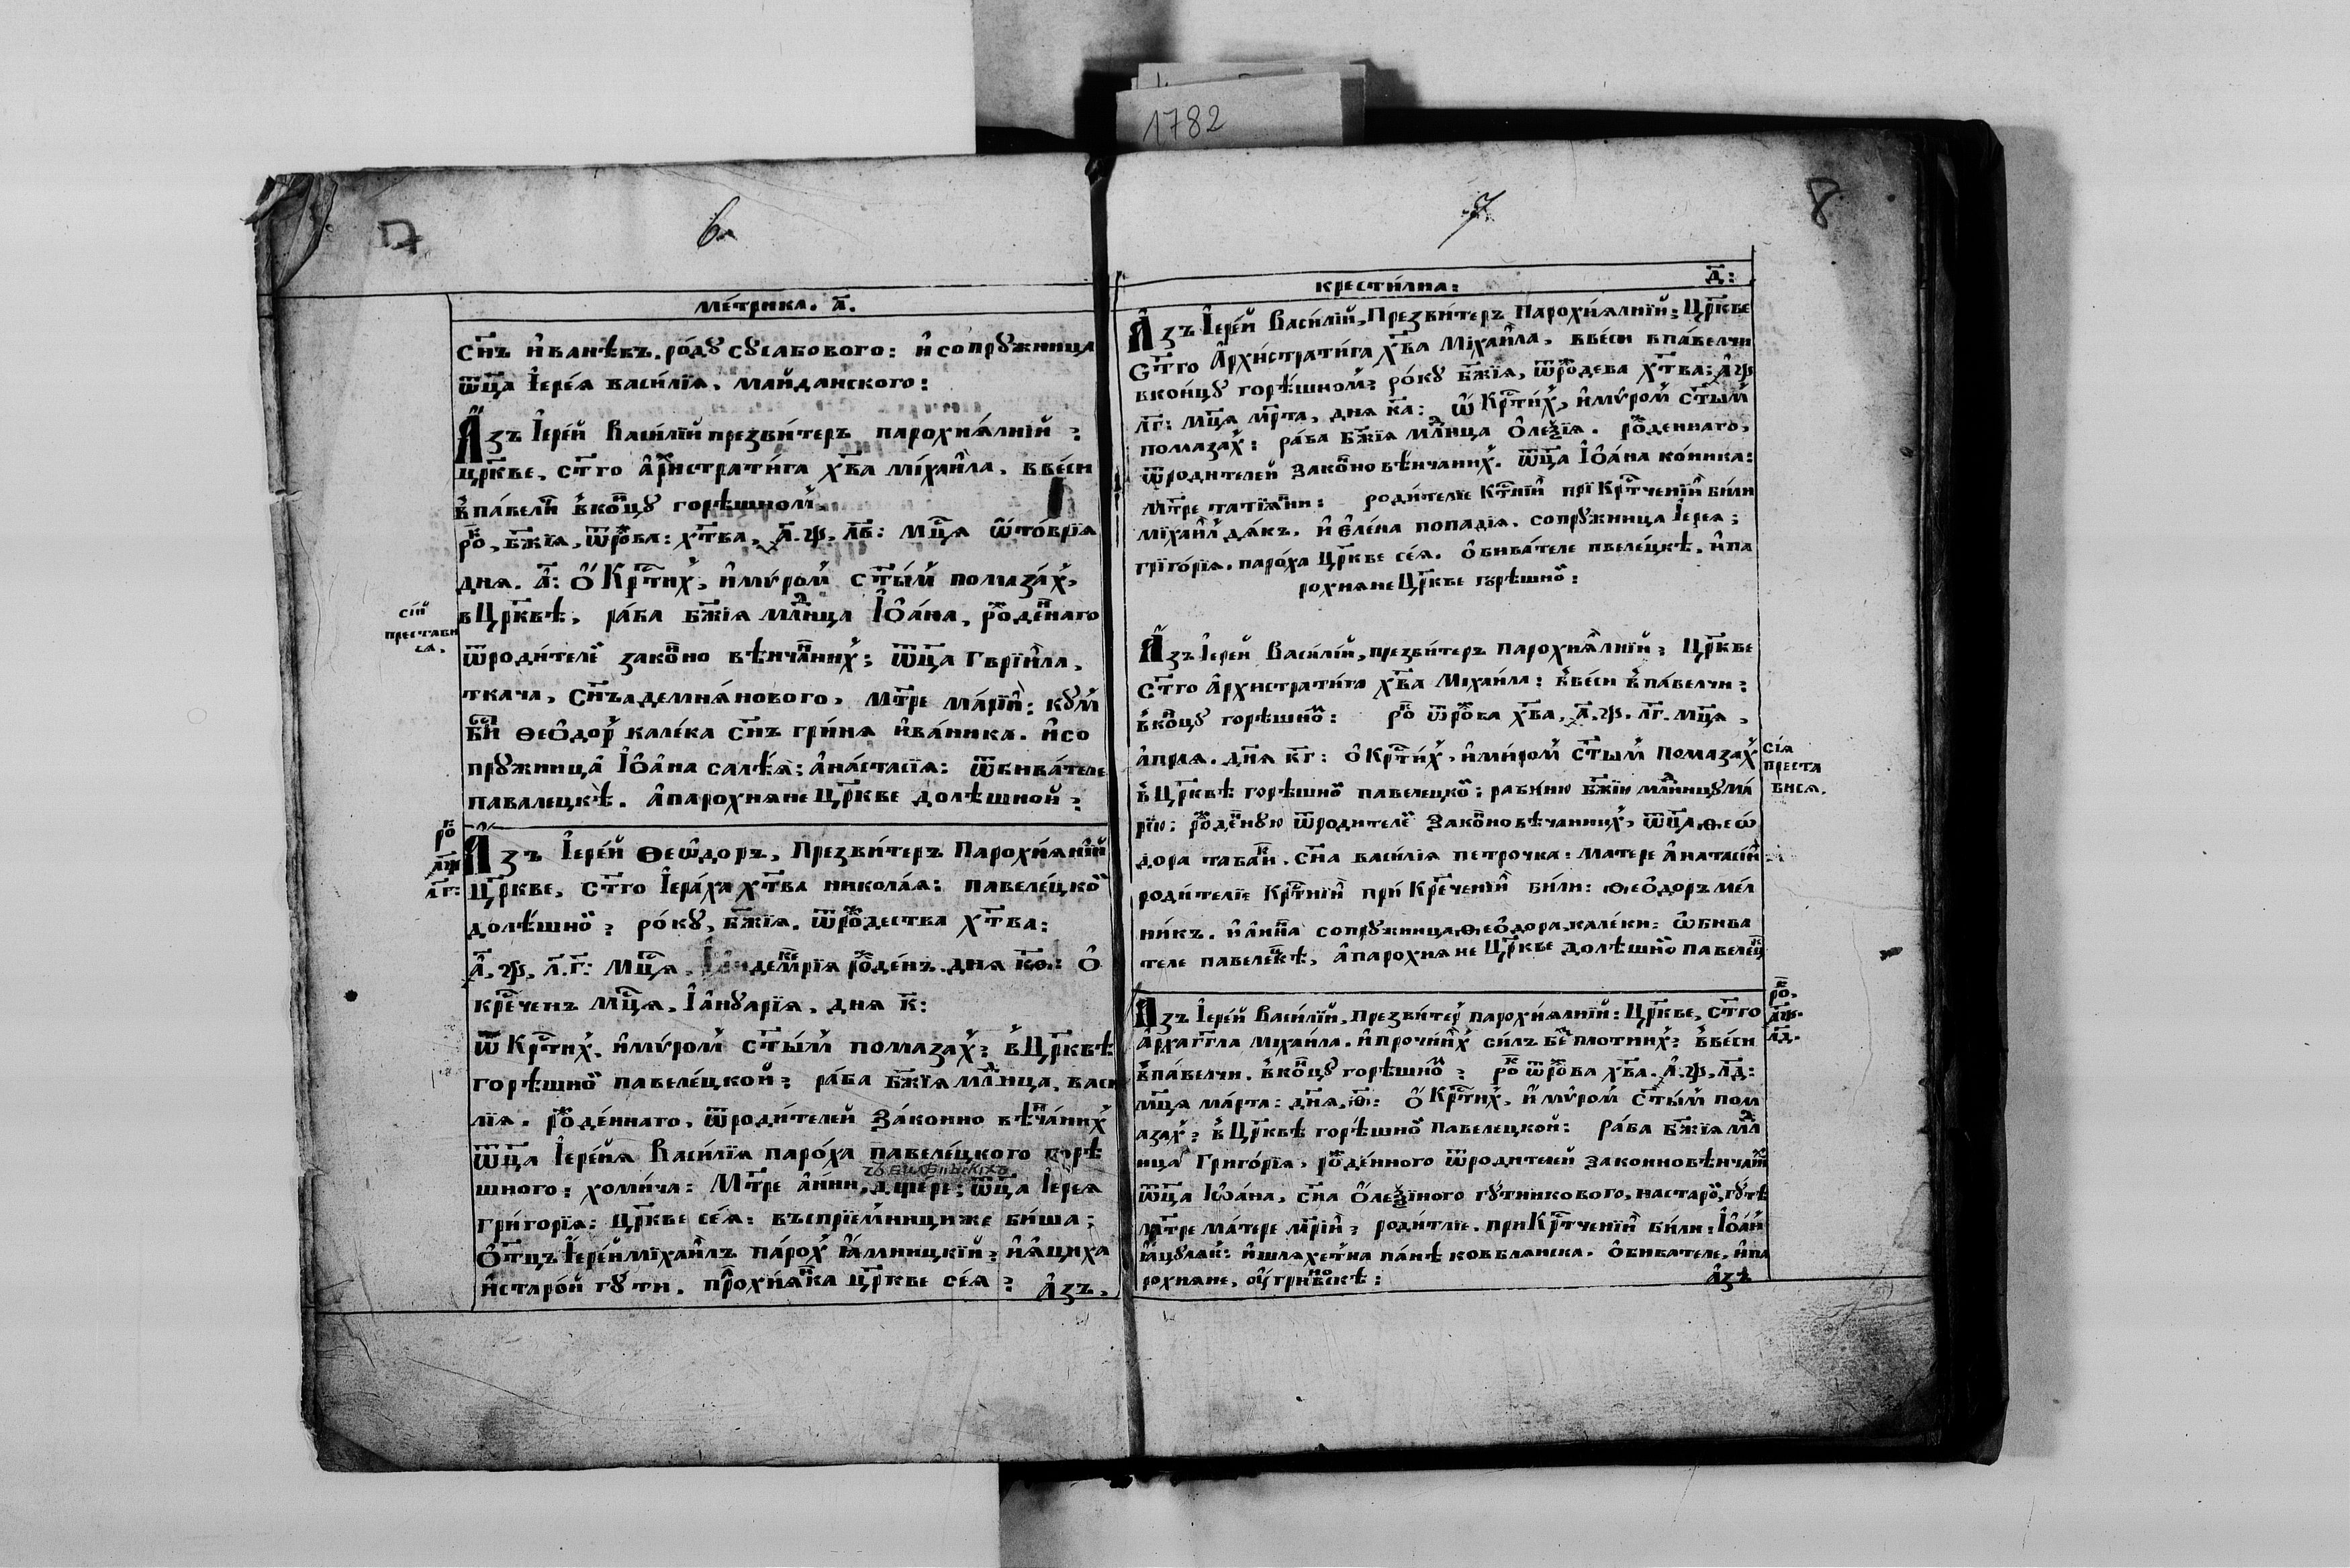 1782
7
6
7
8
ме́трика. а҃.
сн҃ъ и҆ванѣвъ. ро́дꙋ сꙋсабового: и҆ сопрꙋжница
ѿц҃а Іере́а васи́лїа, майданского:
А҆зъ Іере́й Васи́лїй презви́теръ парохиа́лнїй:
цр҃кве, ст҃го а҆рхистрати́га хв҃а міхаи́ла, в ве́си
в па́велч в коцꙋ горѣшном,
ро́к, бж҃їа, ѿрожва: хт҃ва, а҃.ѱ҃. л҃в: мц҃а ѡ҆кто́врїа
дна. а҃: о҆ Крт҃их, и҆ мѵ́ром ст҃ы́м помаза́х,
сі́й
преставы
са.
в Цр҃квѣ, ра́ба бж҃їа млд҃нца Іѻ҆а́на, рожде́ннаго
ѿроди́теле́й зако́нно вѣнча́нних; ѿц҃а Гврїи́ла,
ткача, сн҃ъа демиа́нового, мт҃ре ма́рїи: кꙋм
би Ѳео́дор кале́ка сн҃ъ гри́на и҆ва́ника. и҆ со
прꙋжница Іѻ҆а́на салѣ́а: а҆на́стасїа: ѿбива́теле
павалецкѣ. а҆ парохиане Цр҃кве долѣшной:
ро́к
а҃ѱ
л҃г:
А҆зъ Іере́й Ѳеѡ́доръ, Презви́теръ Парохи́анїй
Цр҃кве, ст҃го Іера́ха хт҃ва никола́а: павеле́цкой
долѣ́шной: ро́кꙋ, бж҃їа. ѿрождества хт҃ва:
а҃.ѱ҃. л҃.г҃: Мц҃а, демврїа рожде́нъ. дна к҃ѳ: о҆
кре́щенъ мц҃а, Іа҆нꙋарїа, дна к҃:
ѿ Крт҃их. и҆ мѵ́ром ст҃ы́м помазах: в Цр҃квѣ
горѣшной павеле́цкой: ра́ба бж҃їа млд҃нца, васи
лїа. рожде́ннаго, ѿроди́телей За́конно вѣнча́них
ѿц҃а Іере́йа Васи́лїа паро́ха павеле́цкого горѣ
шного: хоми́ча: Мт҃ре а҆нни, дщере: ѿц҃а Іереа
григо́рїа: цр҃кве се́а: въспрїемницыже би́ша:
О҆т҃цъ Іере́й мїхаи́лъ па́рох а́лницкїй: и҆ а҆циха
и҆ старо́й гꙋ́ти. прохиа́нка цр҃кве се́а: А҆зъ.
крести́лна:
д҃:
А҆зъ Іере́й Васи́лїй, Презви́теръ Парохи́алнїй: Цр҃кве
Ст҃го А҆рхистрати́га хв҃а Міхаи́ла, в ве́си в па́велчи
в концꙋ горѣ́шном: ро́кꙋ бж҃їа, ѿрождева хт҃ва: а҃ѱ҃
л҃г: мц҃а мр҃та, дна к҃а: ѡ҆ Крт҃и́х, и҆ мѵ́ром ст҃ым
помазах: ра́ба бж҃їа млд҃нца О҆леѯїа. рожденнаго,
ѿродителей Зако́нно вѣнчаних. ѿц҃а Іѻ҆а́на ко́ника:
мт҃ре татїа́ни: роди́телїе Кт҃нїи прї Крт҃ченїи били
мїхаи́л дакъ. и҆ е҆ле́на попадїа. сопрꙋжница Іереа:
грїго́рїа. паро́ха Цр҃кве се́а. о҆бива́теле пвеле́цкѣ. и҆ па
рохиане Цр҃кве горѣшной:
А҆зъ Іерей Васи́лїй, презви́теръ Парохиа́лнїй: Цр҃кве
ст҃го А҆рхистратига хв҃а Міхаи́ла: в ве́си в па́велчи:
в коцꙋ горѣшной: ро́к ѿрожва хв҃а, а҃.ѱ҃. л҃г. мц҃а,
а҆прла. дн҃а к҃г: о҆ Крт҃и́х, и҆ ми́ром ст҃ым помазах
сі́а
преста
виса.
в Цр҃квѣ горѣшной павелецкой: рабы́ню бж҃їю млд҃ницꙋ ма́
рїю: рожде́нꙋю ѿродителей Зако́нно вѣчанних, ѿц҃а Ѳеѡ
дора табак. сн҃а васи́лїа петрочка: матере а҆натасїи
роди́телїе Крт҃нїи при́ Кре́ченїи били: Ѳеѻ҆доръ ме́л
ни́къ. и҆ а҆нна сопрꙋжница Ѳеѻ҆дора, кале́ки: ѡ҆бива
теле павеле́кѣ, а҆ парохиане Цр҃кве долѣшной павелец
ро́к,
а҃ѱ.
л҃д.
А҆зъ Іере́й Васи́лїй, Презви́тер парохи́алнїй: Цр҃кве, ст҃го
А҆рхагг҃ла Міхаи́ла. и҆ прочі́их си́лъ бесплотних: в ве́си
в па́велчи. в коцꙋ горѣшной: ро́к ѿрожва хв҃а. а҃.ѱ҃. л҃д:
мц҃а ма́рта: дн҃а, ѳ҃і: о҆ Крт҃и́х, и҆ мѵ́ром ст҃ы́м пом
азах: в Цр҃квѣ горѣшной павелецкой: ра́ба бж҃їа млд҃
нца Григо́рїа, рожде́нного ѿродителей законно вѣнча́н
ѿц҃а Іѡ҆а́на, сн҃а О҆леѯїного гꙋ́тникового, на старо́й, гꙋ́тѣ
мт҃ре ма́тере мр҃їи: роди́тлїе. при Крт҃ченїи били: Іѻ҆а́н
ꙗ҆цꙋлак: и҆ шлахе́тна па́нѣ ковблаиска. О҆бивателе, и҆ па
рохиане, оу҆гри́новскѣ:
А҆зъ